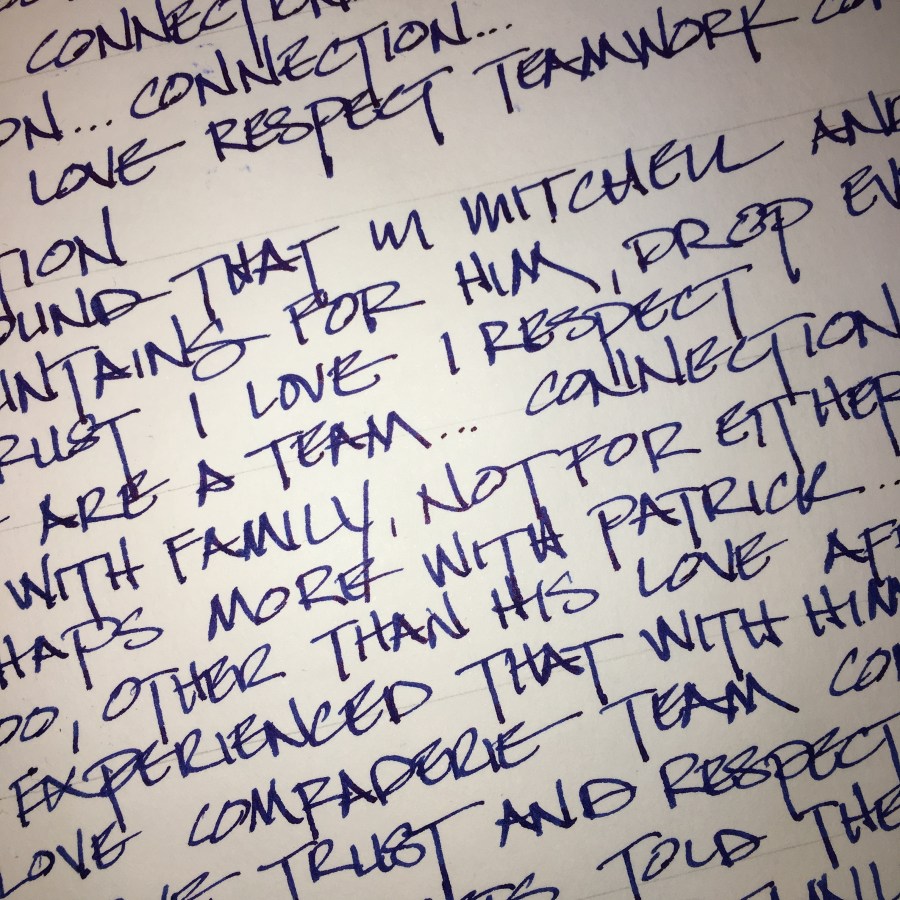 CONNECTION...
ON... CONNECTION...
LOVE RESPECT TEAMWORK CO
TION
OUND THAT IN MITCHELL AND
UNTAINS FOR HIM, DROP EV
RUST I LOVE I RESPECT
ARE A TEAM... CONNECTION
WITH FAMILY, NOT FOR EITHER
HAPS MORE WITH PATRICK...
OO, OTHER THAN HIS LOVE AFF
EXPERIENCED THAT WITH HIM
LOVE COMRADERIE TEAM CON
TRUST AND RESPECT
TOLD THE